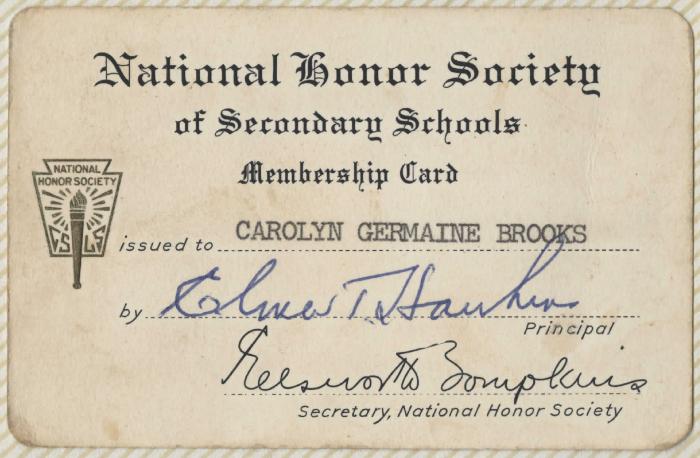 National Honor Society
of Secondary Schools
Membership Card
NATIONAL
HONOR SOCIETY
C S L S
issued to CAROLYN GERMAINE BROOKS
by Elmer T. Hawkins
Principal
Ellsworth Tompkins
Secretary, National Honor Society